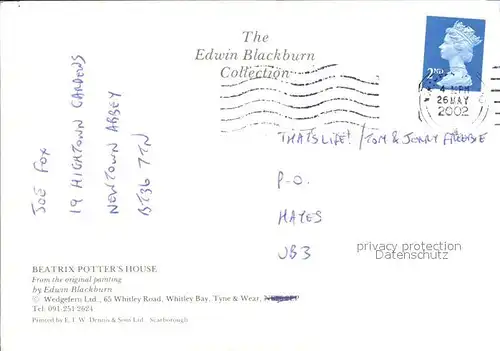 The
Edwin Blackburn
Collection
2ND
4 PM
26 MAY
2002
JOE FOX
19 HIGHTOWN GARDENS
NEWTOWN ABBEY
BT36 7TN
THATS LIFE! / TOM & JERRY FREEBIE
P.O.
HAYES
UB3
privacy protection
Datenschutz
BEATRIX POTTER'S HOUSE
From the original painting
by Edwin Blackburn
© Wedgefern Ltd., 65 Whitley Road, Whitley Bay, Tyne & Wear,
Tel: 091-251 2624
Printed by E. T. W. Dennis & Sons Ltd. Scarborough